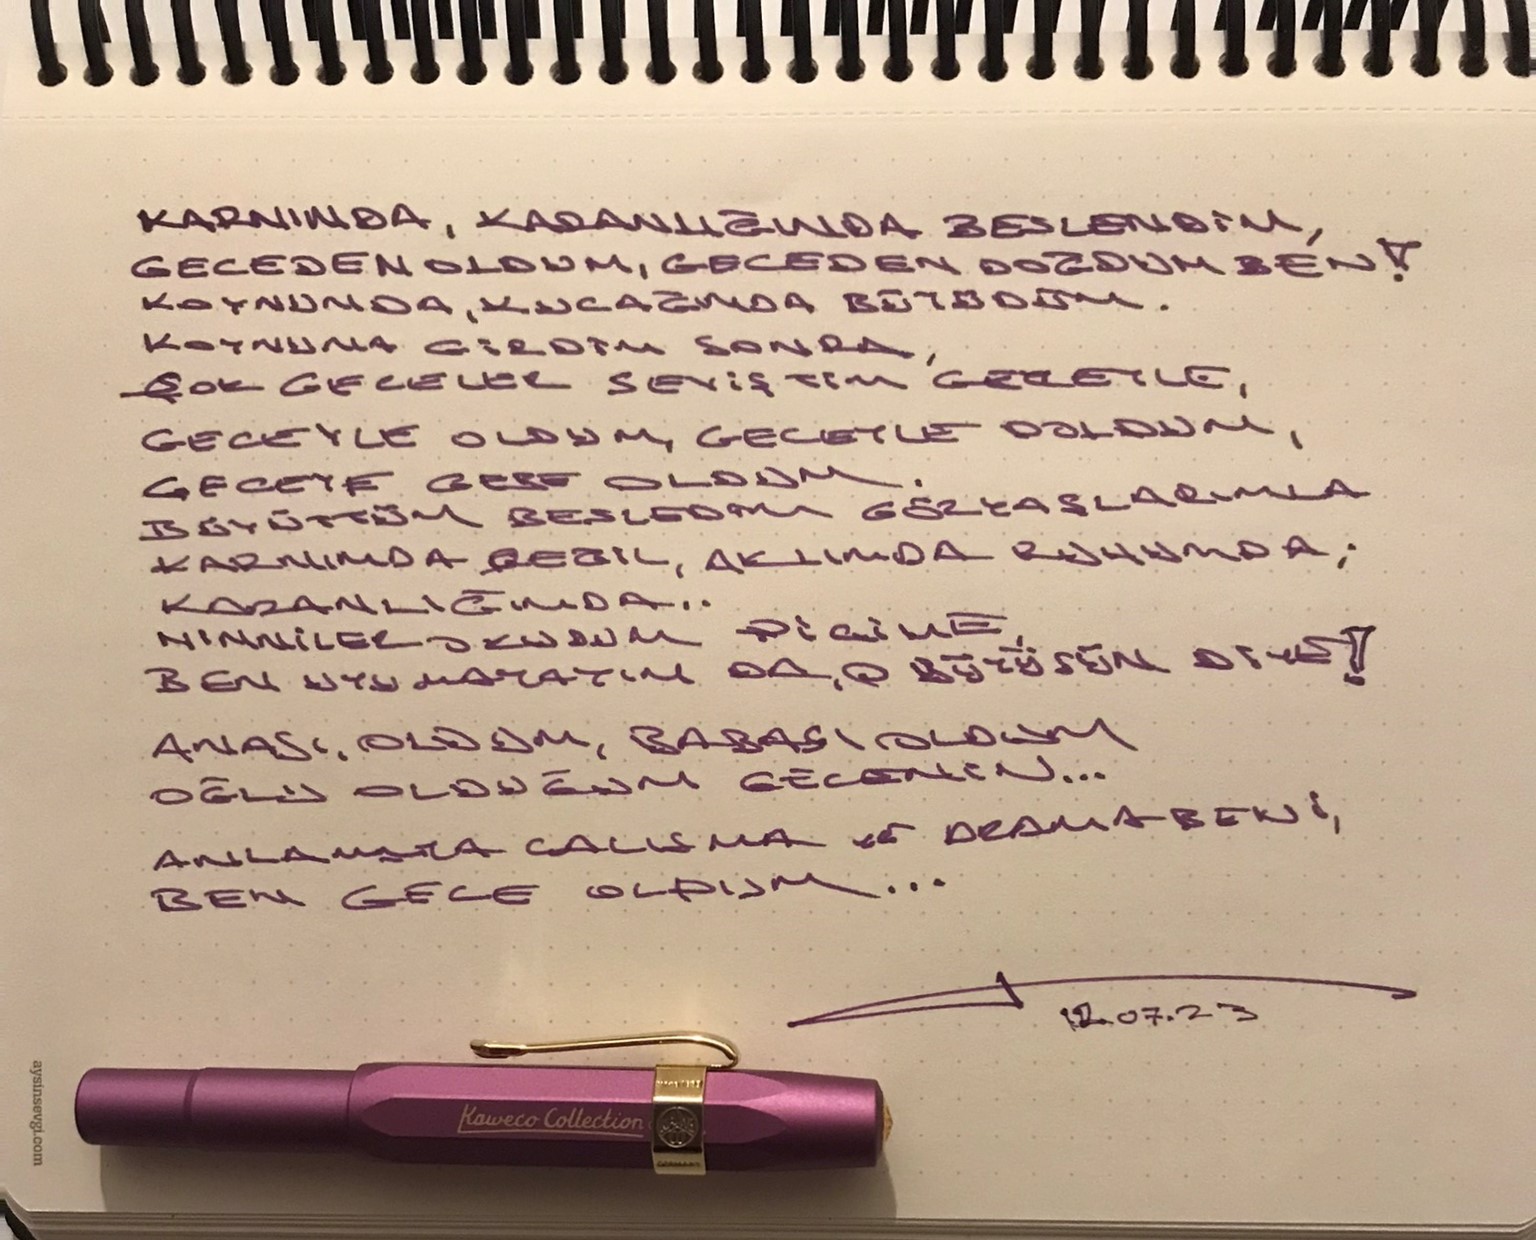 KARNINDA, KARANLIĞINDA BESLENDİM,
GECEDEN OLDUM, GECEDEN DOĞDUM BEN!
KOYNUNDA, KUCAĞINDA BÜYÜDÜM.
KOYNUNA GİRDİM SONRA,
ÇOK GECELER SEVİŞTİM GECEYLE,
GECEYLE OLDUM, GECEYLE DOLDUM,
GECEYE GEBE OLDUM.
BÜYÜTTÜM BESLEDİM GÖZYAŞLARIMLA
KARNIMDA DEĞİL, AKLIMDA RUHUMDA;
KARANLIĞIMDA..
NİNNİLER OKUDUM PİCİME,
BEN UYUMAYAYIM DA, O BÜYÜSÜN DİYE!
ANASI, OLDUM, BABASI OLDUM
OĞLU OLDUĞUM GECENİN...
ANLAMAYA ÇALIŞMA ve ARAMA BENİ,
BEN GECE OLDUM...
12.07.23
Kaweco Collection
GERMANY
aysinsevgi.com